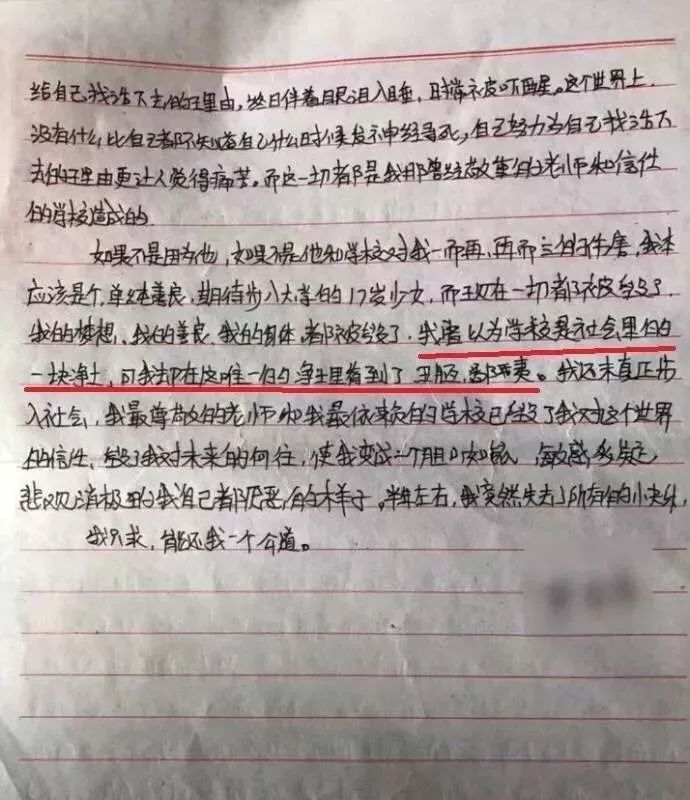 给自己找活下去的理由，终日伴着眼泪入睡，时常被吓醒。这个世界上
没有什么比自己都不知道自己什么时候发神经寻死，自己努力为自己找活下
去的理由更让人觉得痛苦。而这一切都是我那曾经敬重的老师和信任
的学校造成的
如果不是因为他，如果不是他和学校对我一而再，再而三的伤害，我本
应该是个单纯善良，期待步入大学的17岁少女，而现在一切都被毁了
我的梦想、我的善良、我的身体，都被毁了。我曾以为学校是社会里的
一块净土，可我却在这唯一的净土里看到了丑陋，邪恶。我还未真正步
入社会，我最尊敬的老师和我最依赖的学校已毁了我对这个世界
的信任，毁了我对未来的向往，使我变成一个胆小如鼠，敏感多疑
悲观消极的我自己都厌恶的样子。半年左右，我突然失去了所有的小快乐，
我只求，能还我一个公道。